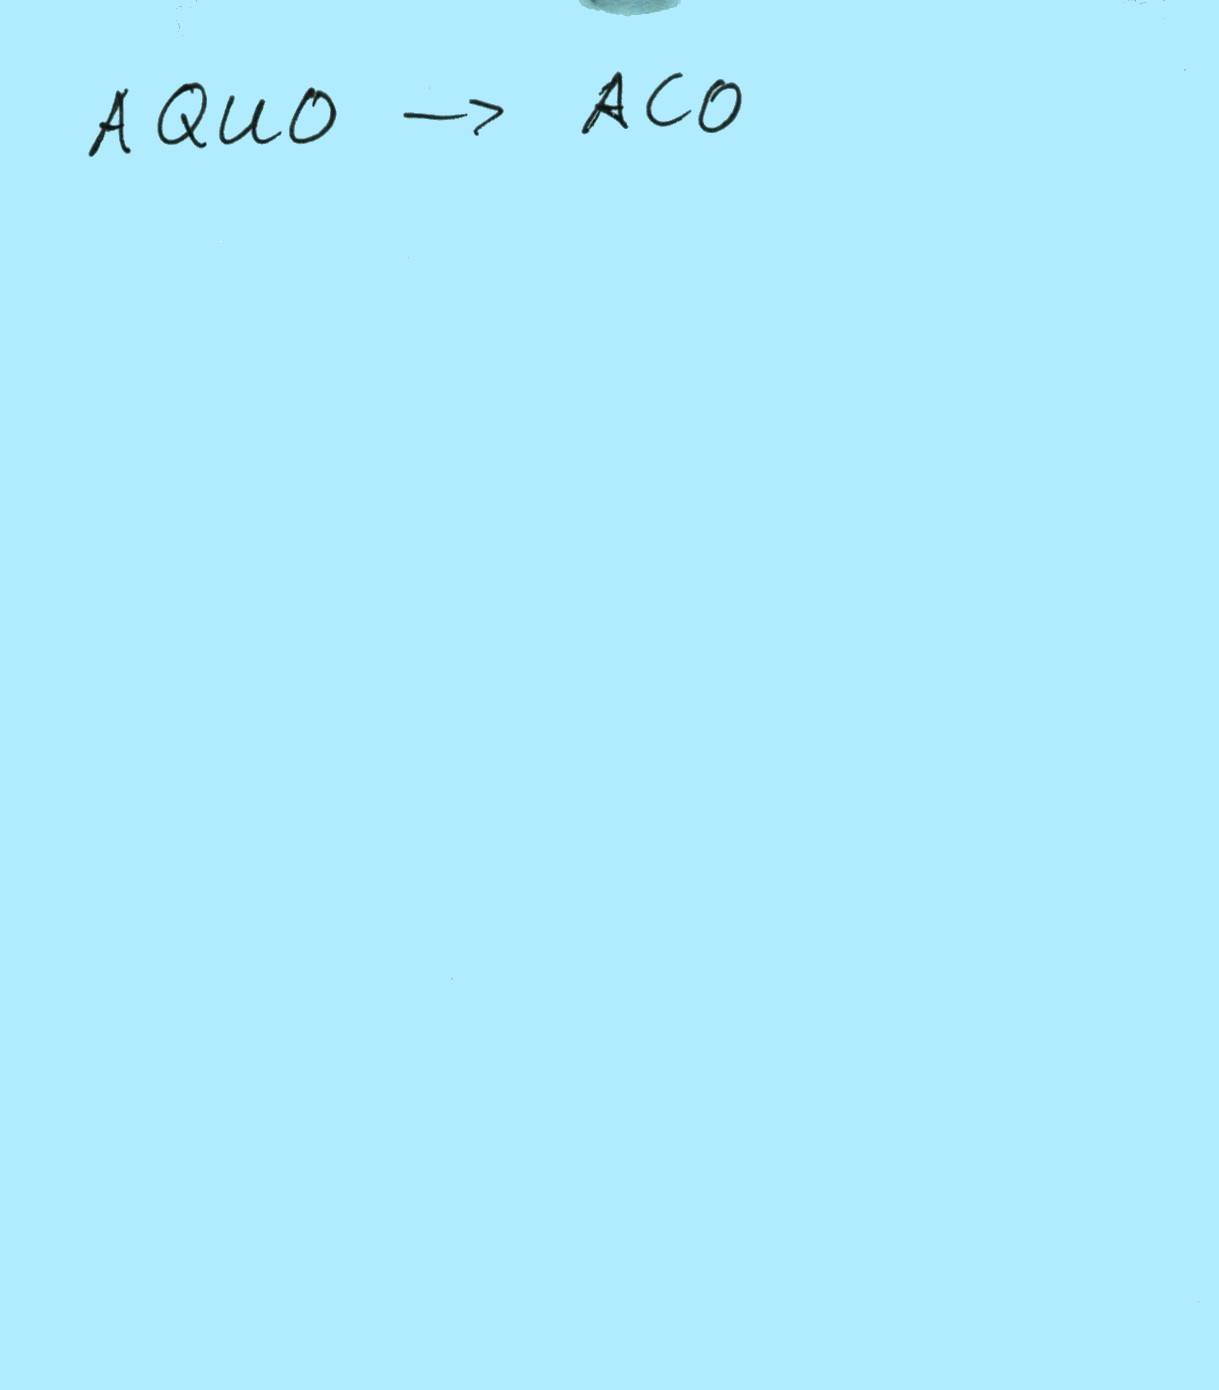 AQUO -> ACO